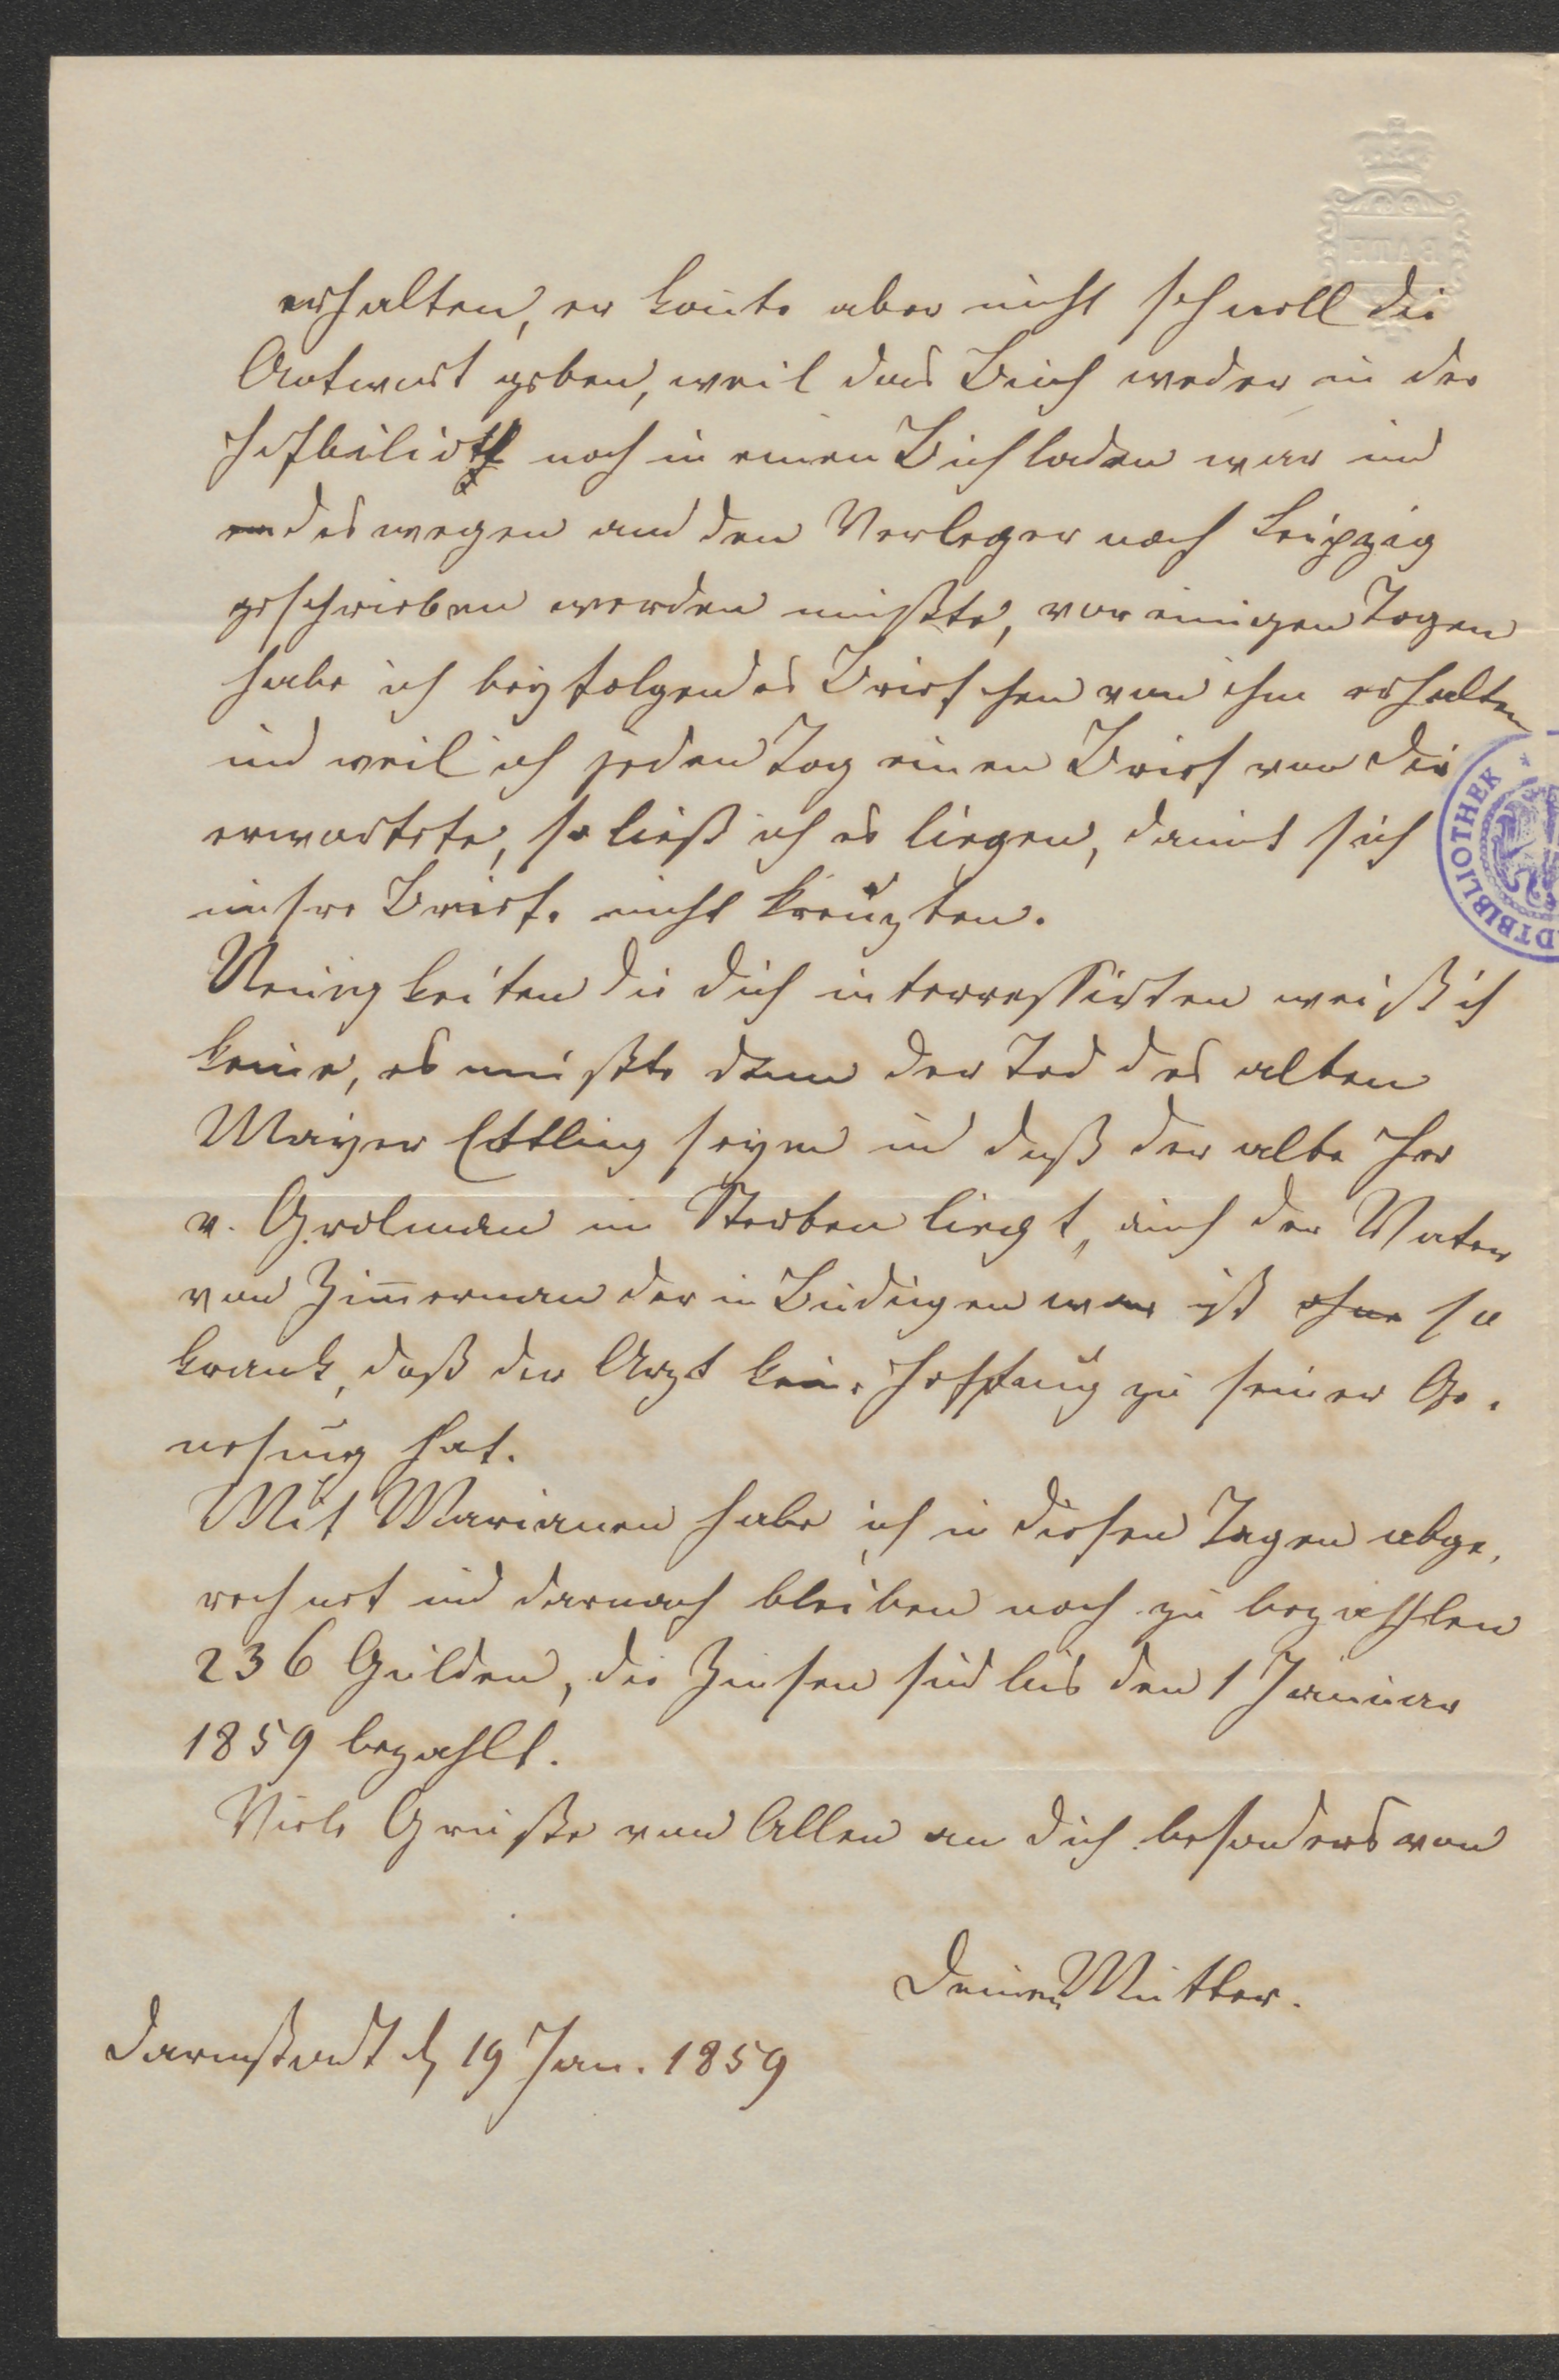 BATH
erhalten, er konte aber nicht schnell die
Antwort geben, weil das Buch weder in der
Hofbilioth noch in einen Buchladen war und
deswegen and den Verleger nach Leipzig
geschrieben werden mußte, vor einigen Tagen
habe ich beyfolgendes Briefchen von ihm erhalten
und weil ich jeden Tag einen Brief von dir
erwartete, so ließ ich es liegen, damit sich
unsre Briefe nicht kreuzten.
Neuigkeiten die dich interressirten weiß ich
keine, es mußte denn der Tod des alten
Mayer Ettling seyn und daß der alte Her
v. Grolman im Sterben liegt, auch der Vater
von Zim̅erman der in Büdingen war ist ohne so
krank, daß der Arzt keine Hoffnung zu seiner Ge-
nesung hat.
Mit Marianen habe ich in diesen Tagen abge-
rechnet und darnach bleiben noch zu bezahlen
236 Gulden, die Zinsen sind bis den 1 Januar
1859 bezahlt.
Viele Grüße von Allen an dich besonders von
Deiner Mutter.
Darmstadt d 19 Jan. 1859
DTBIBLIOTHEK *